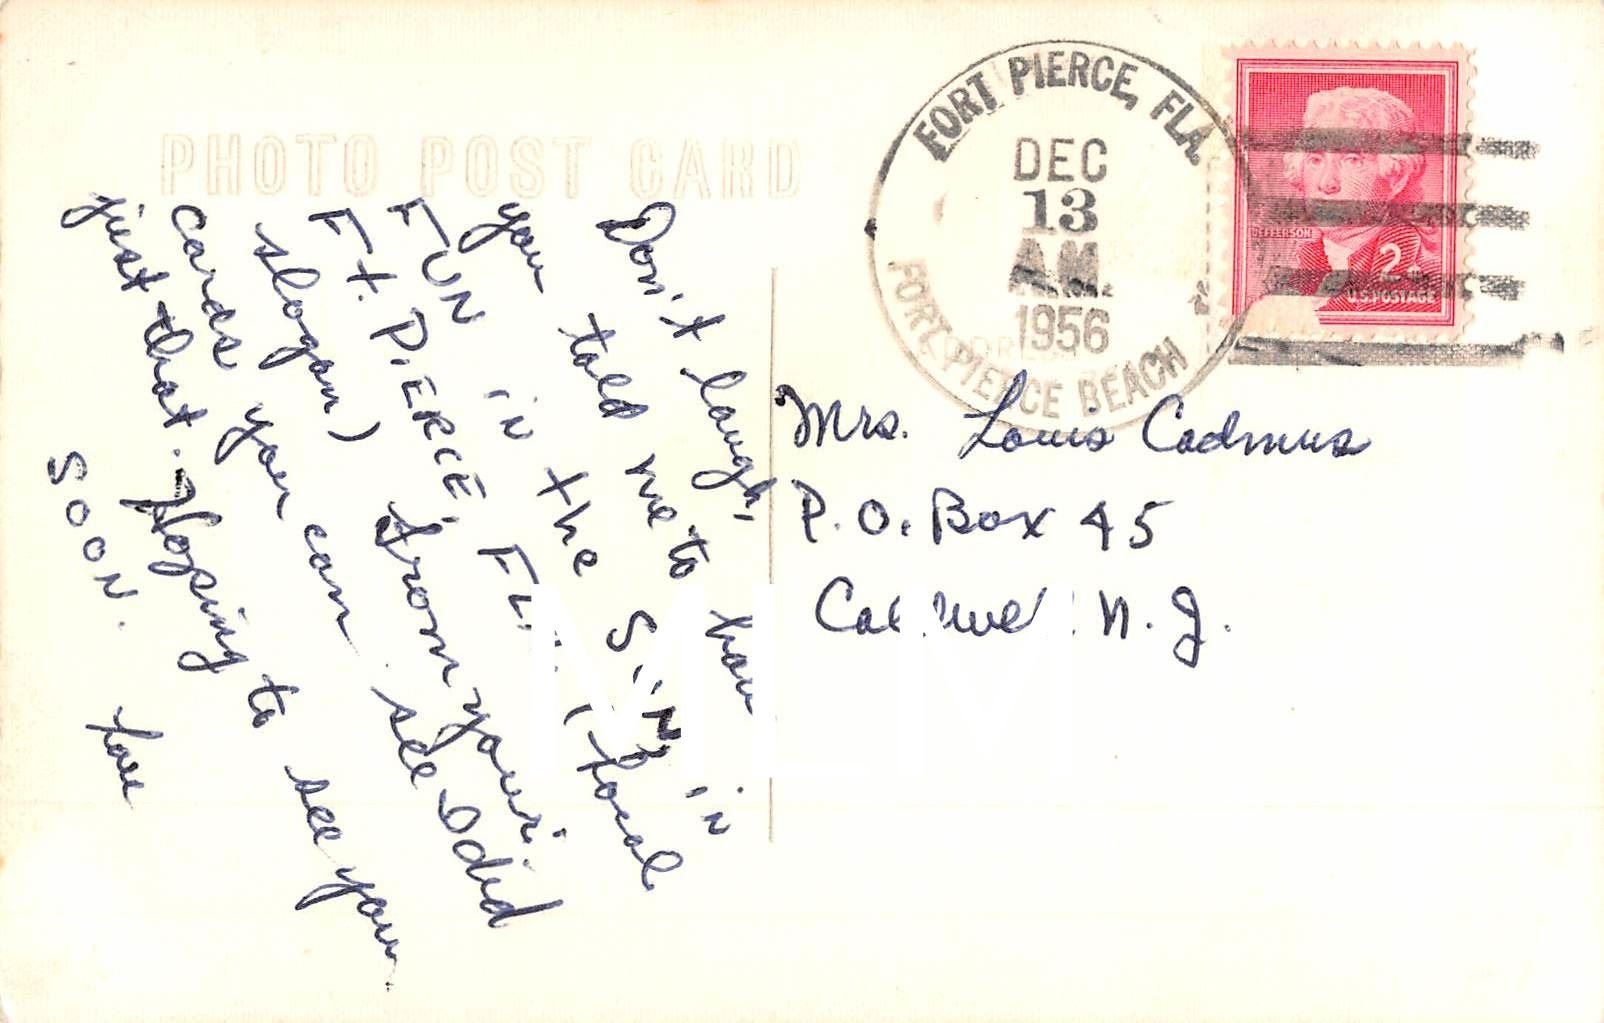 PHOTO POST CARD
Don't laugh,
you told me to have
FUN in the SUN in
Ft. PIERCE, FLA. (local
slogan) from your
cards you can see I did
just that. Hoping to see you
SOON. Love
FORT PIERCE, FLA.
DEC
13
A.M.
1956
FORT PIERCE BEACH
JEFFERSON
2
U.S. POSTAGE
Mrs. Louis Cadmus
P.O. Box 45
N.J.
MLM